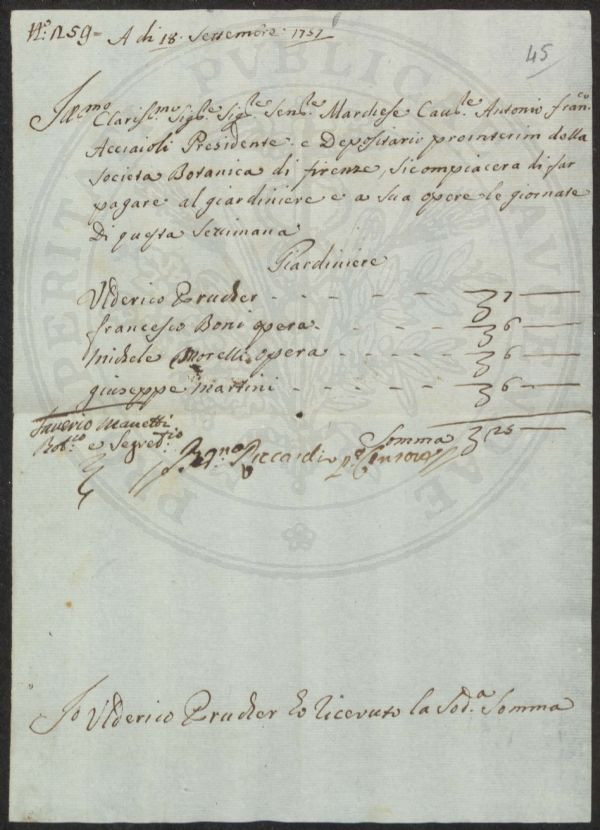 N.º 1259= A di 18. Settembre. 1757
45
Ill.mo Claris.mo Sig.re Sig.re Sen.re Marchese Cau.re Antonio fran.co
Acciaioli Presidente e Depositario prointerim della
Societa Botanica di firenze, si compiacera di far
pagare al giardiniere e a sua opere le giornate
Di questa Settimana
Giardiniere
Ulderico Prucker - - - - - - 7 —
francesco Boni opera - - - - 6 —
Michele Morelli opera - - - - 6 —
giuseppe Martini - - - - - 6 —
Saverio Manetti
Somma 25 —
Bot.co e Segret.rio
Riccardi
Io Ulderico Prucker ho ricevuto la Sod.a Somma
PUBLICAE